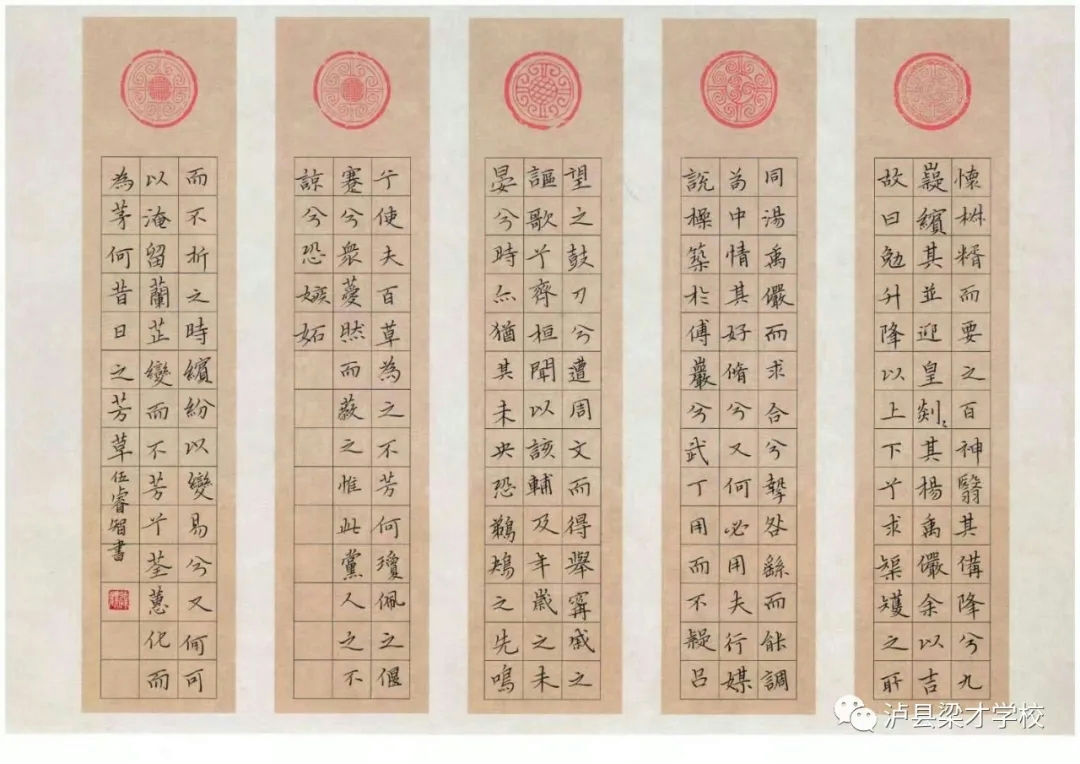 懷椒糈而要之百神翳其備降兮九
嶷繽其並迎皇剡々其楊禹儼余以吉
故曰勉升降以上下兮求榘矱之所
同湯禹儼而求合兮摯咎繇而能調
苟中情其好脩兮又何必用夫行媒
說操築於傅巖兮武丁用而不疑呂
望之鼓刀兮遭周文而得舉甯戚之
謳歌兮齊桓聞以該輔及年歲之未
晏兮時亦猶其未央恐鵜鴂之先鳴
兮使夫百草為之不芳何瓊佩之偃
蹇兮衆薆然而蔽之惟此黨人之不
諒兮恐嫉妬
而不折之時繽紛以變易兮又何可
以淹留蘭芷變而不芳兮荃蕙化而
為茅何昔日之芳草伍睿智書
泸县梁才学校